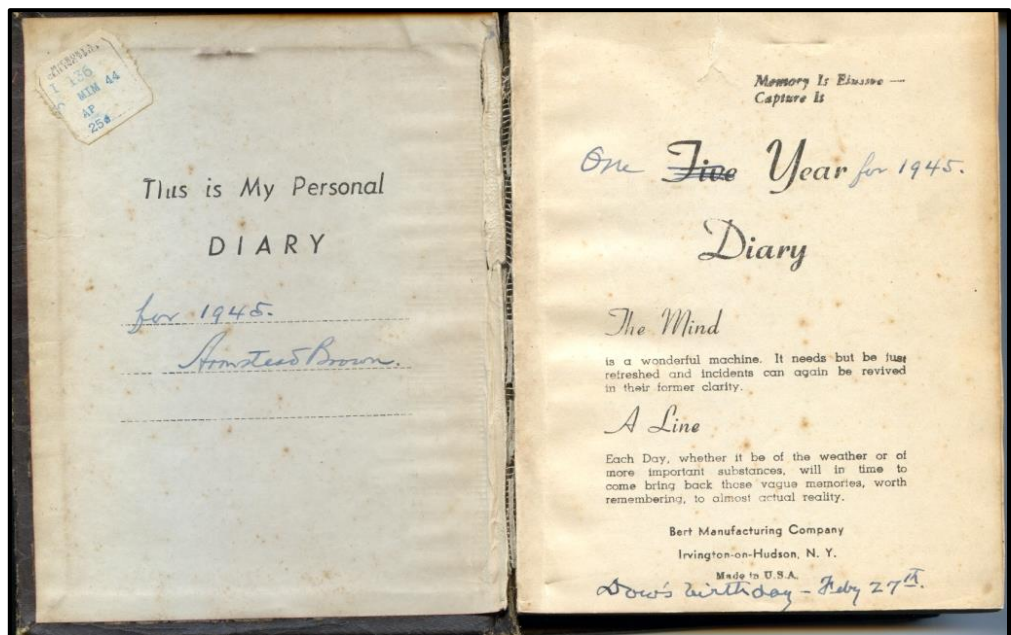 I 136
MIM 44
AP
25¢
This is My Personal
DIARY
for 1945.
Armstead Brown.
Memory Is Elusive —
Capture It
One Five Year for 1945.
Diary
The Mind
is a wonderful machine. It needs but be just
refreshed and incidents can again be revived
in their former clarity.
A Line
Each Day, whether it be of the weather or of
more important substances, will in time to
come bring back those vague memories, worth
remembering, to almost actual reality.
Bert Manufacturing Company
Irvington-on-Hudson, N. Y.
Made in U.S.A.
Dow's birthday - Feby 27th.